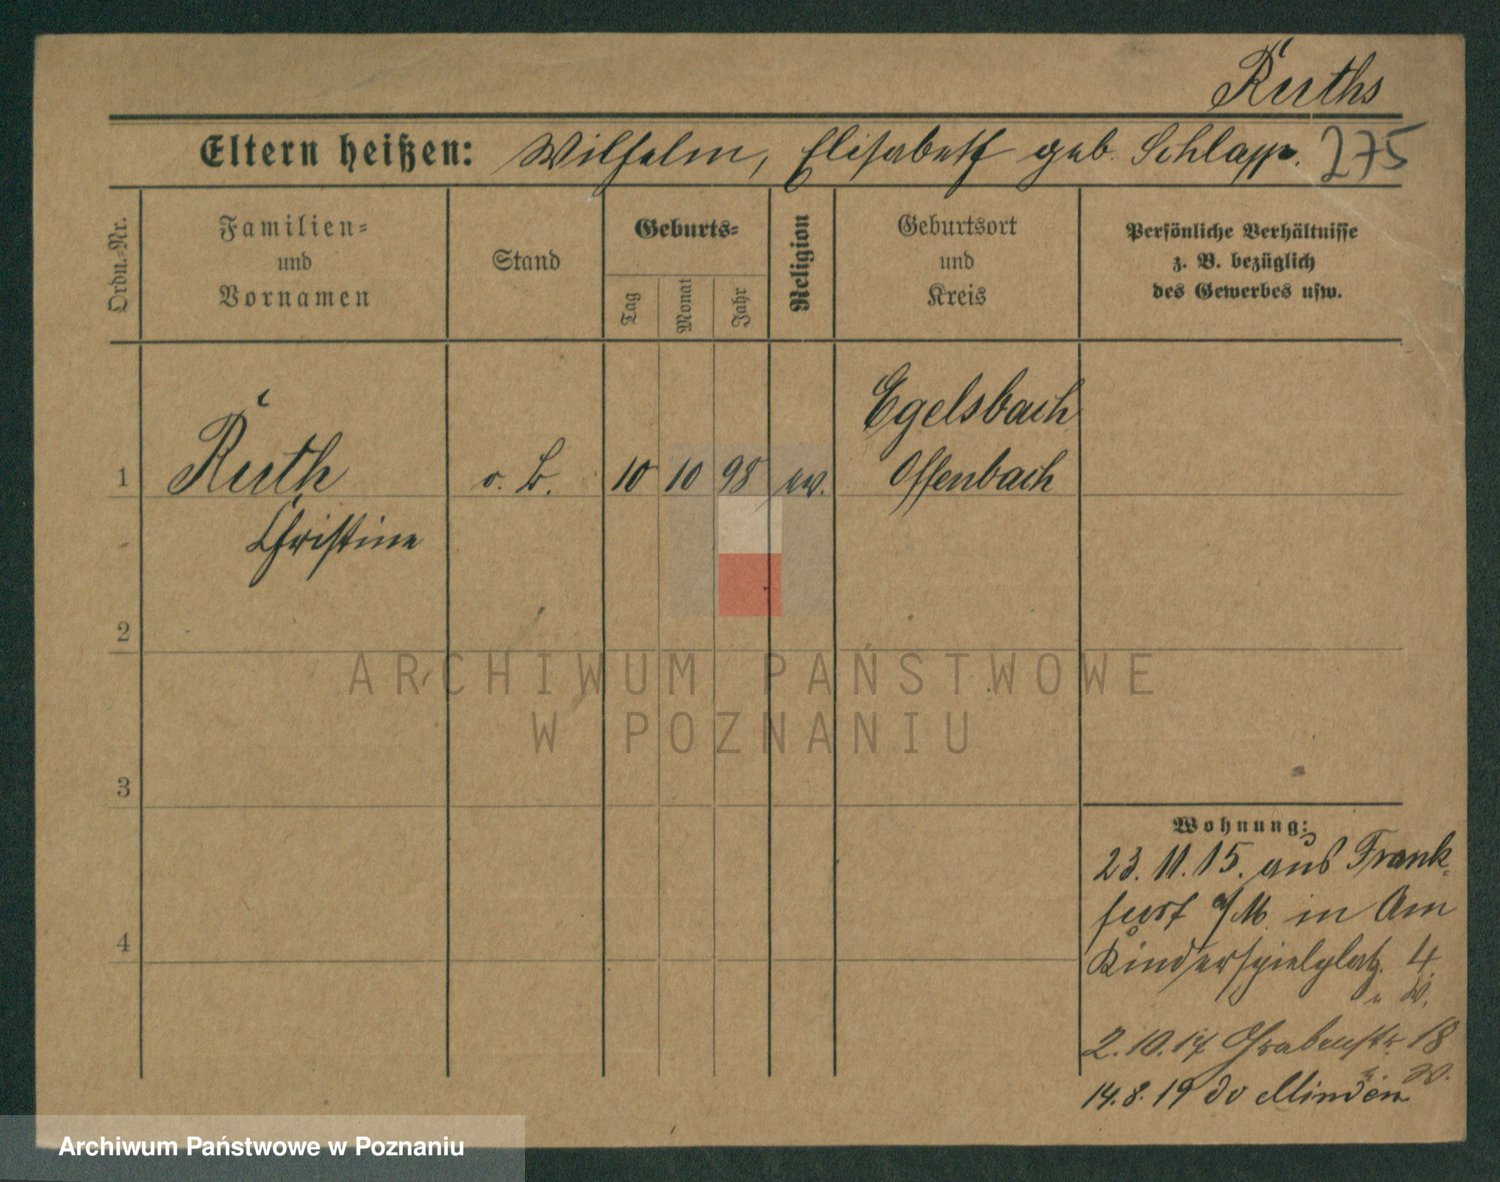 Ruths
Eltern heißen: Wilhelm, Elisabeth geb. Schlapp. 275
Ordn.-Nr.
Familien-
und
Vornamen
Stand
Geburts-
Tag
Monat
Jahr
Religion
Geburtsort
und
Kreis
Persönliche Verhältnisse
z. B. bezüglich
des Gewerbes usw.
Egelsbach
1 Ruth o. B. 10 10 98 ev. Offenbach
Christine
2
ARCHIWUM PAŃSTWOWE
W POZNANIU
3
4
Wohnung:
23. 11. 15. aus Frank-
furt a/M. in Am
Kinderspielplatz. 4.
2. 10. 17 Grabenstr. 18
14. 8. 19 do Minden
Archiwum Państwowe w Poznaniu